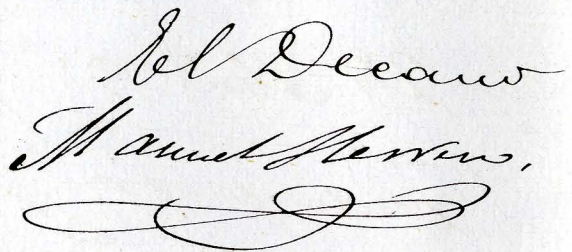 El Decano
Manuel Herrero.